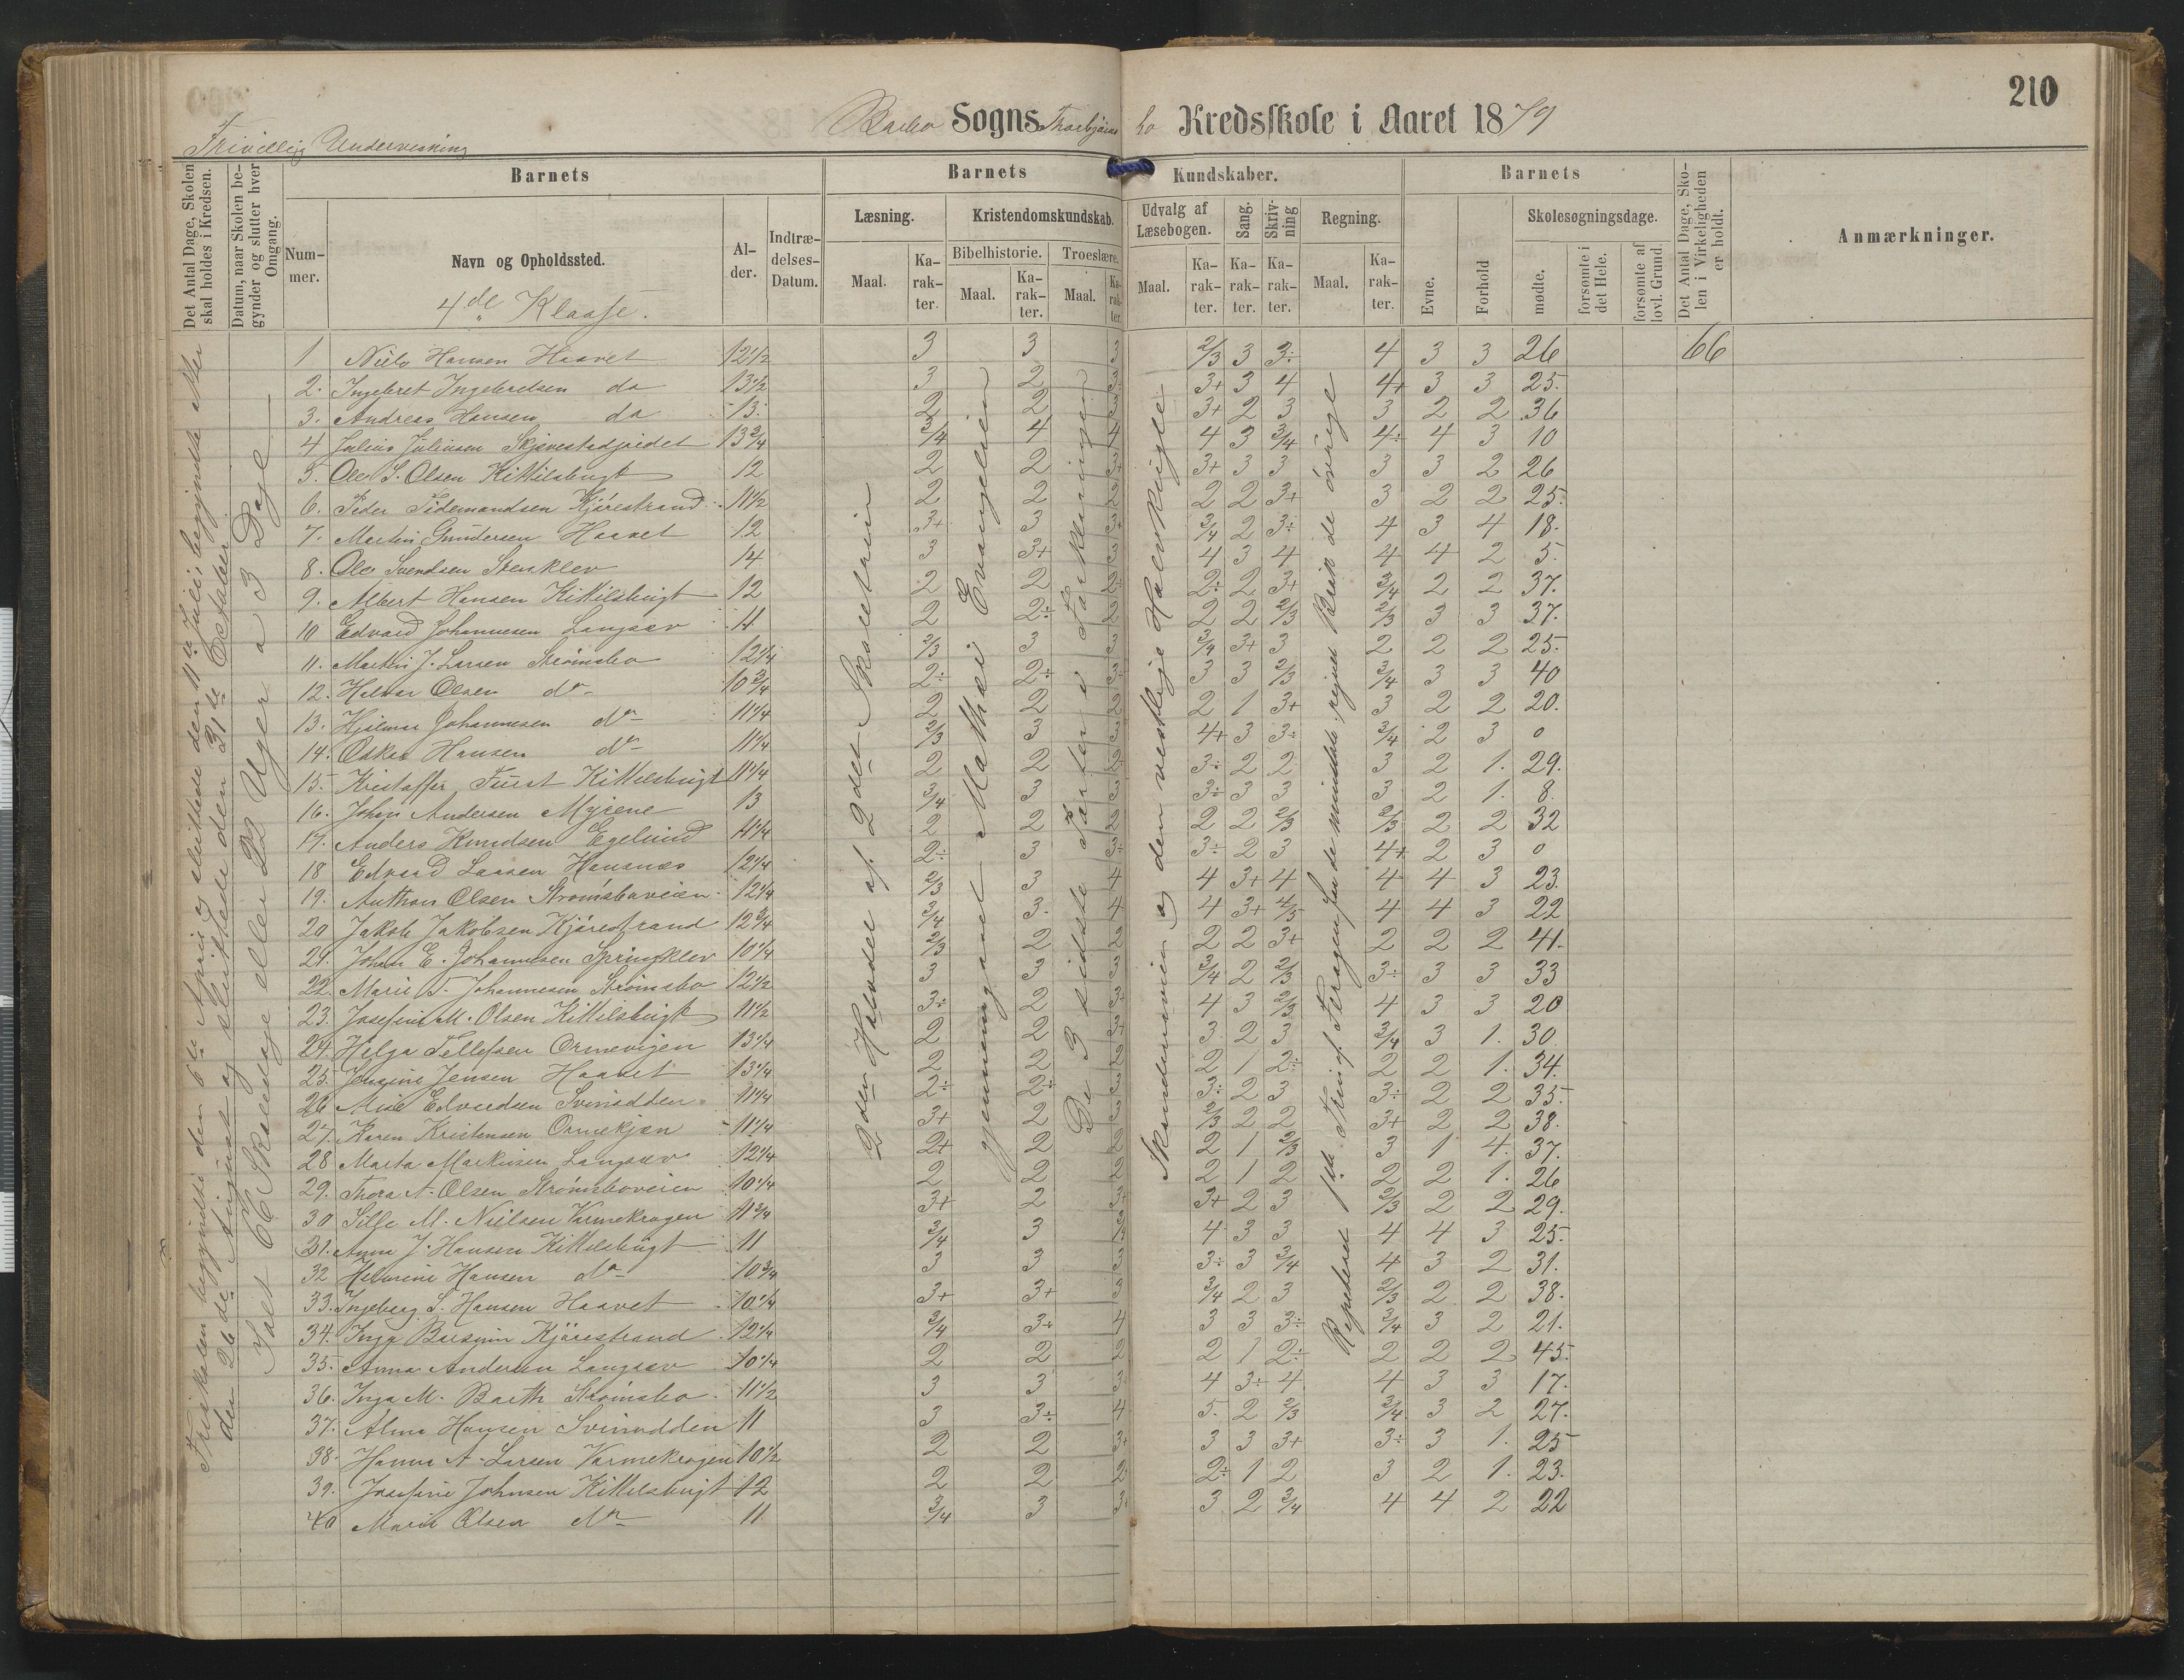 210
Barbo Sogns Thorbjørnsbo Kredsskole i Aaret 1879
Frivillig Undervisning
Det Antal Dage, Skolen skal holdes i Kredsen.
Datum, naar Skolen begynder og slutter hver Omgang.
Barnets
Nummer.
Navn og Opholdssted.
4de Klasse.
Alder.
Indtrædelses-Datum.
Barnets Kundskaber.
Læsning.
Maal.
Karakter.
Kristendomskundskab.
Bibelhistorie.
Maal.
Karakter.
Troeslære.
Maal.
Karakter.
Udvalg af Læsebogen.
Maal.
Karakter.
Sang.
Karakter.
Skrivning
Karakter.
Regning.
Maal.
Karakter.
Barnets
Evne.
Forhold
Skolesøgningsdage.
mødte.
forsømte i det Hele.
forsømte af lovl. Grund.
Det Antal Dage, Skolen i Virkeligheden er holdt.
Anmærkninger.
Friskolen begyndte den 6te April og sluttede den 11te Juli; begyndte
den 26de August og sluttede den 31te
Ialt 66 Skoledage eller 22 Uger a 3 Dage
2den Halvdel af 2det Skoletrin
gjennemgaaet Mathæi Evangelium
De 3 sidste Parter i Forklaringen
Skandinavien og den vestlige Halvkugle
1 Niels Hansen Haavet 12 1/2 3 3 3 2/3 3 3÷ 4 3 3 26 66
2. Ingebret Ingebretsen do 13 1/2 3 2 3 3+ 3 4 4+ 3 3 25.
3. Andreas Hansen do 13. 2 2 3 3+ 2 3 3 2 2 36
4 Julius Julinsen 13 3/4 3/4 4 4 4 3 3/4 4÷ 4 3 10
5. Ole S. Olsen Kittelsbugt 12 2 2 3+ 3+ 3 3 3 3 2 26
6. Peder Tidemandsen Kjørestrand 11 1/2 2 2 2 2 2 3+ 3 2 2 25.
7. Martin Gundersen Haavet 12 3+ 3 3+ 3/4 2 3÷ 4 3 4 18.
8. Ole Svendsen Stenklev 14 3 3+ 3 4 3 4 4 4 2 5.
9. Albert Hansen Kittelsbugt 12 2 2 2÷ 2÷ 2 3+ 3/4 2 2 37.
10 Edvard Johannesen Langsæv 11 2 2÷ 2 2 2 2/3 2/3 3 3 37.
11. Martin J. Larsen Strømsbo 12 1/4 2/3 3 3 3/4 3+ 3 2 2 2 25.
12. Helmer Olsen do 10 3/4 2÷ 2÷ 3÷ 3 3 2/3 3/4 3 3 40
13. Hjalmar Johannesen do 11 1/4 2 2 2 2 1 3+ 3 2 2 20.
14. Oskar Hansen do 11 1/4 2/3 3 3 4+ 3 3÷ 3/4 2 3 0
15. Kristoffer Fürst Kittelsbugt 11 1/4 2 2 2÷ 3÷ 2 2 3 2 1. 29.
16. Johan Andersen Myrene 13 3/4 3 3 3÷ 3 3 3 2 1. 8.
17. Anders Knudsen Egelund 11 1/4 2 2 2 2 2 2/3 2/3 2 2 32
18 Edvard Larsen Hansnæs 12 1/4 2÷ 3 3÷ 3÷ 2 3 4+ 2 3 0
19. Anthon Olsen Strømsboveien 12 1/4 2/3 3 4 4 3+ 4 4 4 3 23.
20 Jakob Jakobsen Kjørestrand 12 3/4 3/4 3. 4 4 3+ 4/5 4 4 3 22
21. Johan E. Johannesen Springklev 10 1/4 2/3 2 2 2 2 3+ 2 2 2 41.
22. Marie Johannesen Strømsbo 12 1/2 3 3 3 3/4 2 2/3 3÷ 3 3 33
23. Josefine M. Olsen Kittelsbugt 11 1/2 3÷ 2 3+ 4 3 2/3 4 3 3 20
24. Helga Tellefsen Ormevigen 13 1/4 2 2 3+ 3. 2 3 3/4 3 1. 30.
25. Jensine Jensen Haavet 13 1/4 2 2 2 2 1 2÷ 2 2 1. 34.
26 Mise Edvardsen Svinodden 11 1/4 2÷ 2÷ 3 3÷ 2 3 3÷ 2 2 35.
27. Karen Kristensen Ormekjær 11 1/4 3+ 2 3 2/3 2 2 3+ 2 2 38.
28 Marta Markusen Langsæv 12 1/4 2+ 2 2 2 1 2/3 3 1 4. 37.
29. Thora A. Olsen Strømsboveien 10 1/4 2 2 2 2 1 2 2 2 1. 26
30 Silfe M. Nielsen Varmekrogen 11 3/4 3+ 2 3+ 3+ 2 3 2/3 2 2 29.
31. Anna J. Hansen Kittelsbugt 11 3/4 3 4 3 3 4 4 3 25.
32 Helmine Hansen do 10 3/4 3 3 3 3÷ 3 3/4 4 3 2 31.
33. Ingeborg S. Hansen Haavet 10 1/4 3+ 3+ 3 3/4 2 3 2/3 2 2 38.
34. Inga Kjørestrand 12 1/4 3/4 3+ 4 3 3 3÷ 3/4 3 2 21.
35. Anna Andersen Langsæv 10 1/4 2 2 2 2 1 2÷ 2 2 2 45.
36. Inga M. Barth Strømsbo 11 1/2 3 3 3 4 3÷ 4 4 3 3 17.
37. Alma Hansen Svinodden 11 3 3÷ 4 5. 2 2/3 3/4 3 2 27.
38. Hanna A. Larsen Varmekrogen 10 1/2 2 2 3+ 3 3 3+ 3÷ 3 1. 25
39. Josefine Johnsen Kittelsbugt 12 2 2 2 2÷ 1 2 3 2 1. 23.
40 Marie Olsen do 11 3/4 3 3 3. 2 3/4 4 4 2 22